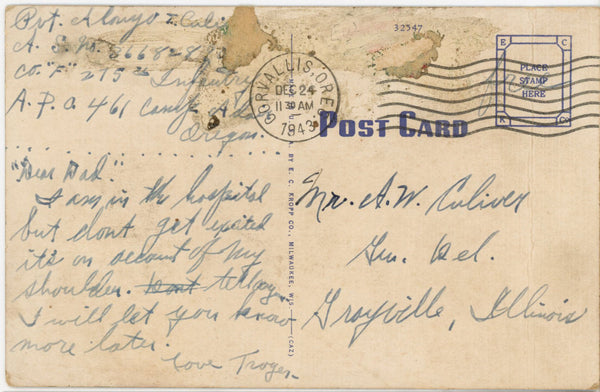 Pvt. Alonzo
A. S. N.
Co. "F" 275th Infantry
A. P. O. 461 Camp
Oregon.
"Dear Dad."
I am in the hospital
but dont get excited
it's on account of my
shoulder. Dont
I will let you know
more later.
Love
32547
CORVALLIS, OREG.
DEC 24
11 30 AM
1943
E C
PLACE
STAMP
HERE
K C
POST CARD
BY E. C. KROPP CO., MILWAUKEE, WIS.
(CAZ)
Mr. A. W. Culiver
Gen. Del.
Grayville, Illinois
Free